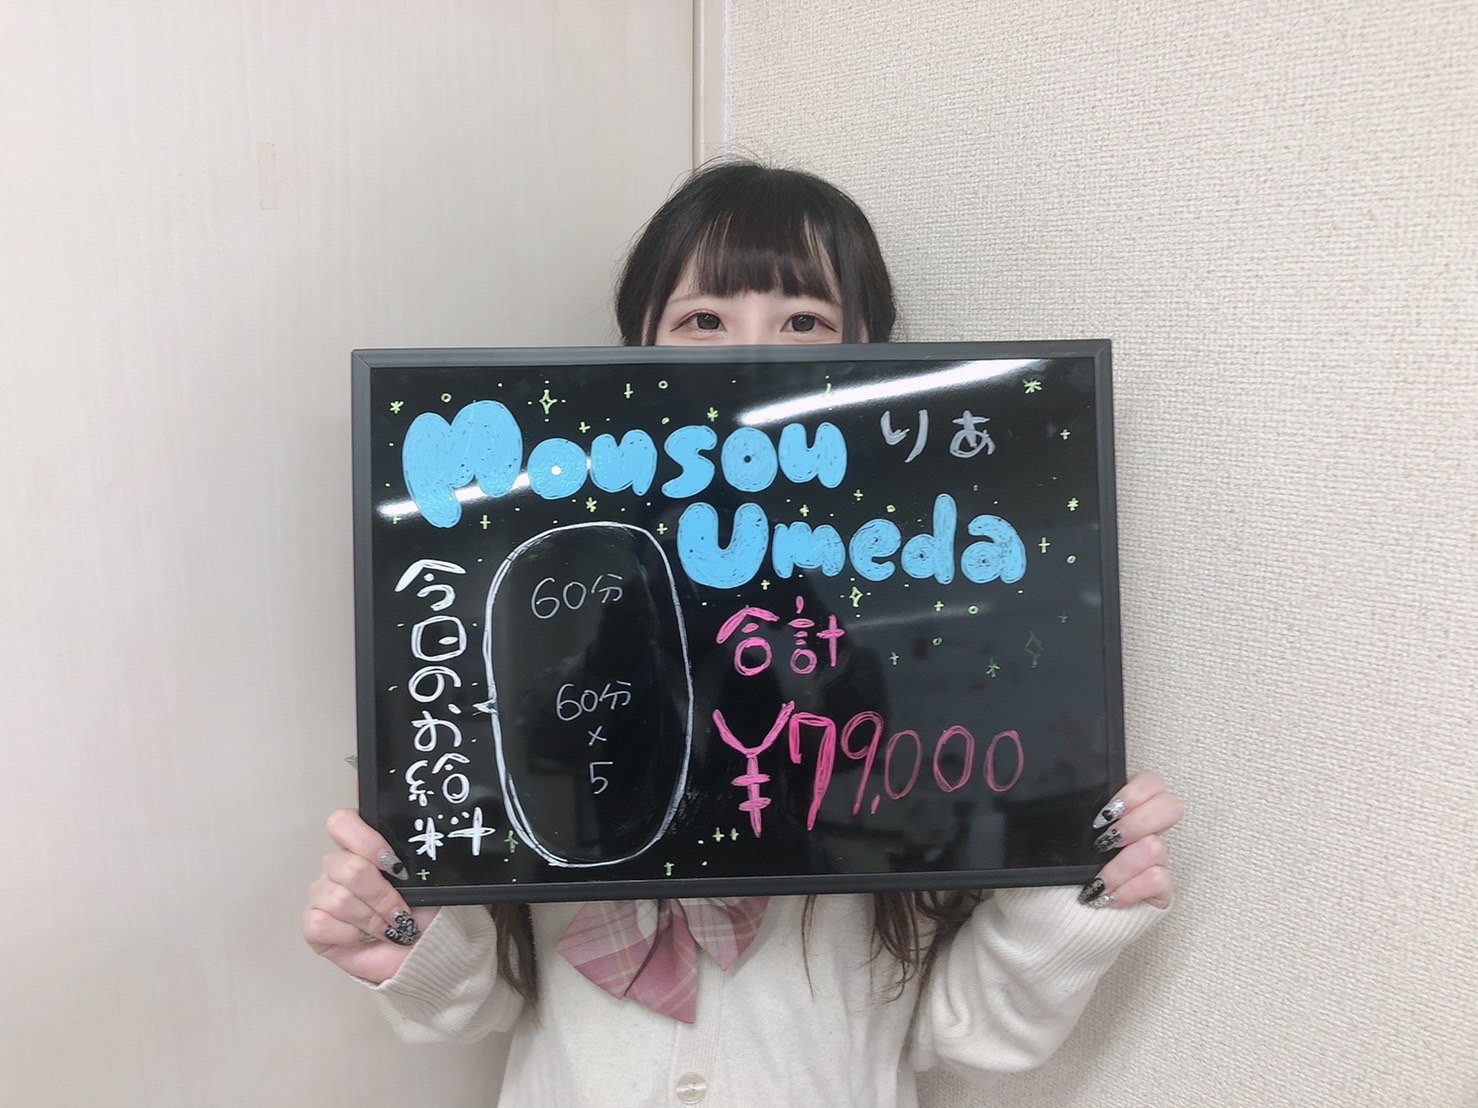 Mousou
りあ
Umeda
今日のお給料
60分
60分
×
5
合計
¥79,000